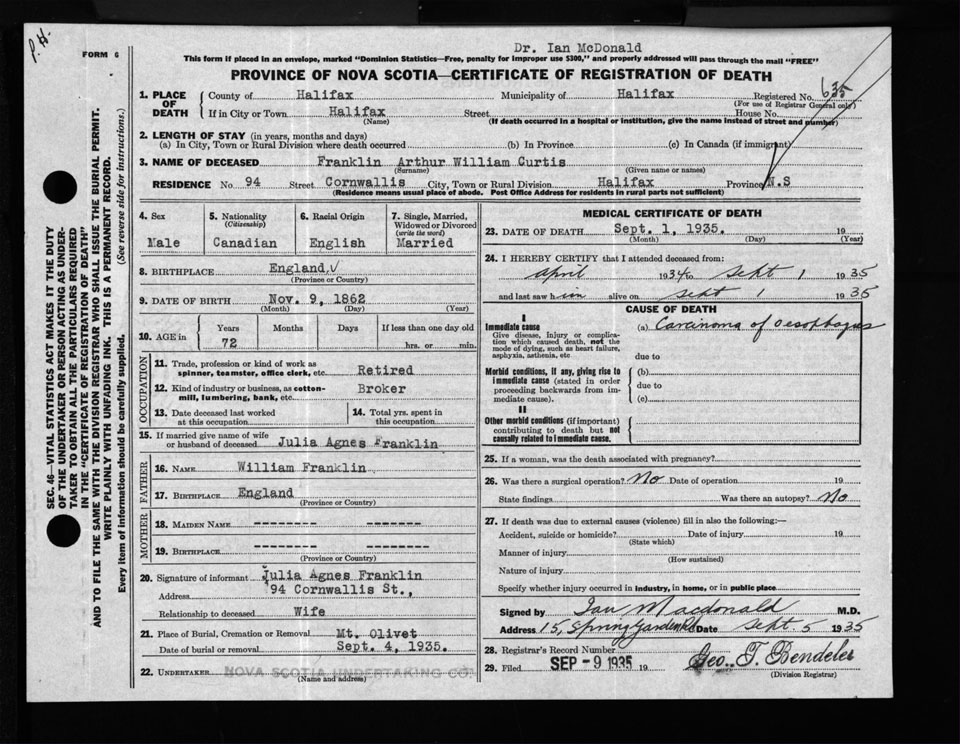 P. H.
Dr. Ian McDonald
FORM 6
This form if placed in an envelope, marked "Dominion Statistics—Free, penalty for improper use $300," and properly addressed will pass through the mail "FREE"
PROVINCE OF NOVA SCOTIA—CERTIFICATE OF REGISTRATION OF DEATH
635
1. PLACE OF DEATH County of Halifax Municipality of Halifax Registered No.
(For use of Registrar General only)
If in City or Town Halifax Street House No.
(Name) (If death occurred in a hospital or institution, give the name instead of street and number)
2. LENGTH OF STAY (in years, months and days)
(a) In City, Town or Rural Division where death occurred (b) In Province (c) In Canada (if immigrant)
3. NAME OF DECEASED Franklin Arthur William Curtis
(Surname) (Given name or names)
RESIDENCE No 94 Street Cornwallis City, Town or Rural Division Halifax Province N.S
(Residence means usual place of abode. Post Office Address for residents in rural parts not sufficient)
SEC. 46—VITAL STATISTICS ACT MAKES IT THE DUTY
OF THE UNDERTAKER OR PERSON ACTING AS UNDER-
TAKER TO OBTAIN ALL THE PARTICULARS REQUIRED
IN THE "CERTIFICATE OF REGISTRATION OF DEATH"
AND TO FILE THE SAME WITH THE DIVISION REGISTRAR WHO SHALL ISSUE THE BURIAL PERMIT.
WRITE PLAINLY WITH UNFADING INK. THIS IS A PERMANENT RECORD.
Every item of information should be carefully supplied. (See reverse side for instructions.)
4. Sex 5. Nationality 6. Racial Origin 7. Single, Married,
(Citizenship) Widowed or Divorced
(write the word)
Male Canadian English Married
8. BIRTHPLACE England √
(Province or Country)
9. DATE OF BIRTH Nov. 9, 1862
(Month) (Day) (Year)
10. AGE in Years Months Days If less than one day old
72 hrs. or min.
OCCUPATION
11. Trade, profession or kind of work as
spinner, teamster, office clerk, etc. Retired
12. Kind of industry or business, as cotton-
mill, lumbering, bank, etc. Broker
13. Date deceased last worked at this occupation 14. Total yrs. spent in this occupation
15. If married give name of wife
or husband of deceased Julia Agnes Franklin
FATHER
16. NAME William Franklin
17. BIRTHPLACE England
(Province or Country)
MOTHER
18. MAIDEN NAME --------- --------
19. BIRTHPLACE --------- --------
(Province or Country)
20. Signature of informant Julia Agnes Franklin
Address 94 Cornwallis St.,
Relationship to deceased Wife
21. Place of Burial, Cremation or Removal Mt. Olivet
Date of burial or removal Sept. 4, 1935.
22. UNDERTAKER NOVA SCOTIA UNDERTAKING CO.
(Name and address)
MEDICAL CERTIFICATE OF DEATH
23. DATE OF DEATH Sept. 1, 1935. 19
(Month) (Day) (Year)
24. I HEREBY CERTIFY that I attended deceased from:
April 1934 to Sept 1 1935
and last saw him alive on Sept 1 1935
CAUSE OF DEATH
I
Immediate cause (a) Carcinoma of Oesophagus
Give disease, injury or complica-
tion which caused death, not the
mode of dying, such as heart failure,
asphyxia, asthenia, etc due to
Morbid conditions, if any, giving rise to (b)
immediate cause (stated in order due to
proceeding backwards from im-
mediate cause). (c)
II
Other morbid conditions (if important)
contributing to death but not
causally related to immediate cause.
25. If a woman, was the death associated with pregnancy?
26. Was there a surgical operation? No Date of operation 19
State findings Was there an autopsy? No
27. If death was due to external causes (violence) fill in also the following:—
Accident, suicide or homicide? Date of injury 19
(State which)
Manner of injury
(How sustained)
Nature of injury
Specify whether injury occurred in industry, in home, or in public place
Signed by Ian Macdonald M.D.
Address 15, Spring Garden Rd Date Sept. 5 1935
28. Registrar's Record Number
29. Filed SEP -9 1935 19 Geo. T. Bendeler
(Division Registrar)